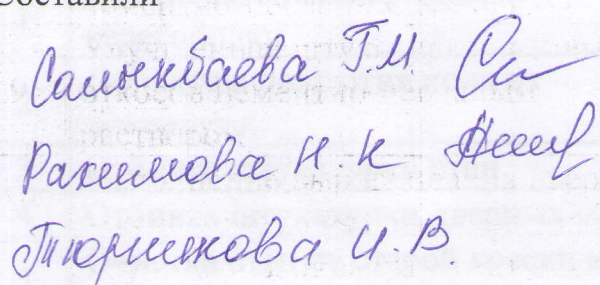 Составили
Салыкбаева Г.М.
Рахимова Н.К
Тюришкова И.В